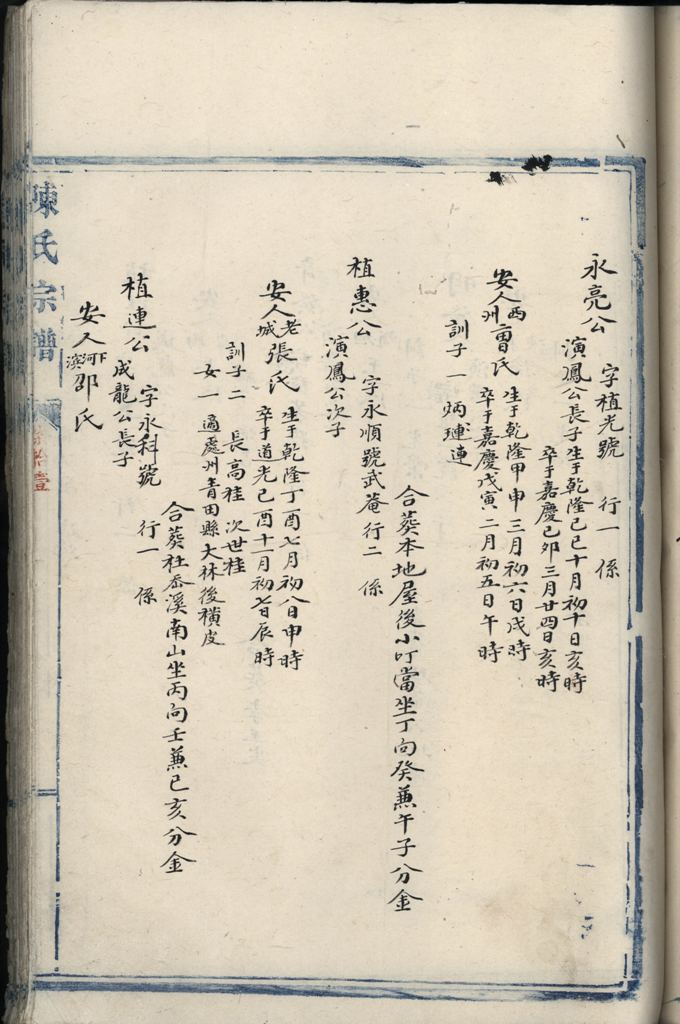 永亮公 字植光號 行一 係
演鳳公長子生于乾隆己巳十月初十日亥時
卒于嘉慶己卯三月廿四日亥時
安人西州曺氏 生于乾隆甲申三月初六日戌時
卒于嘉慶戊寅二月初五日午時
訓子一 炳璉
合葵本地屋後小叮當坐丁向癸兼午子分金
植惠公 字永順號武菴行二 係
演鳳公次子
安人老城張氏 生于乾隆丁酉七月初八日申時
卒于道光己酉十一月初七日辰時
訓子二 長高桂 次世桂
女一 適處州青田縣大林後橫皮
合葵社岙溪南山坐丙向壬兼巳亥分金
植連公 字永科號 行一 係
成龍公長子
安人河下濱邵氏
陳氏宗譜